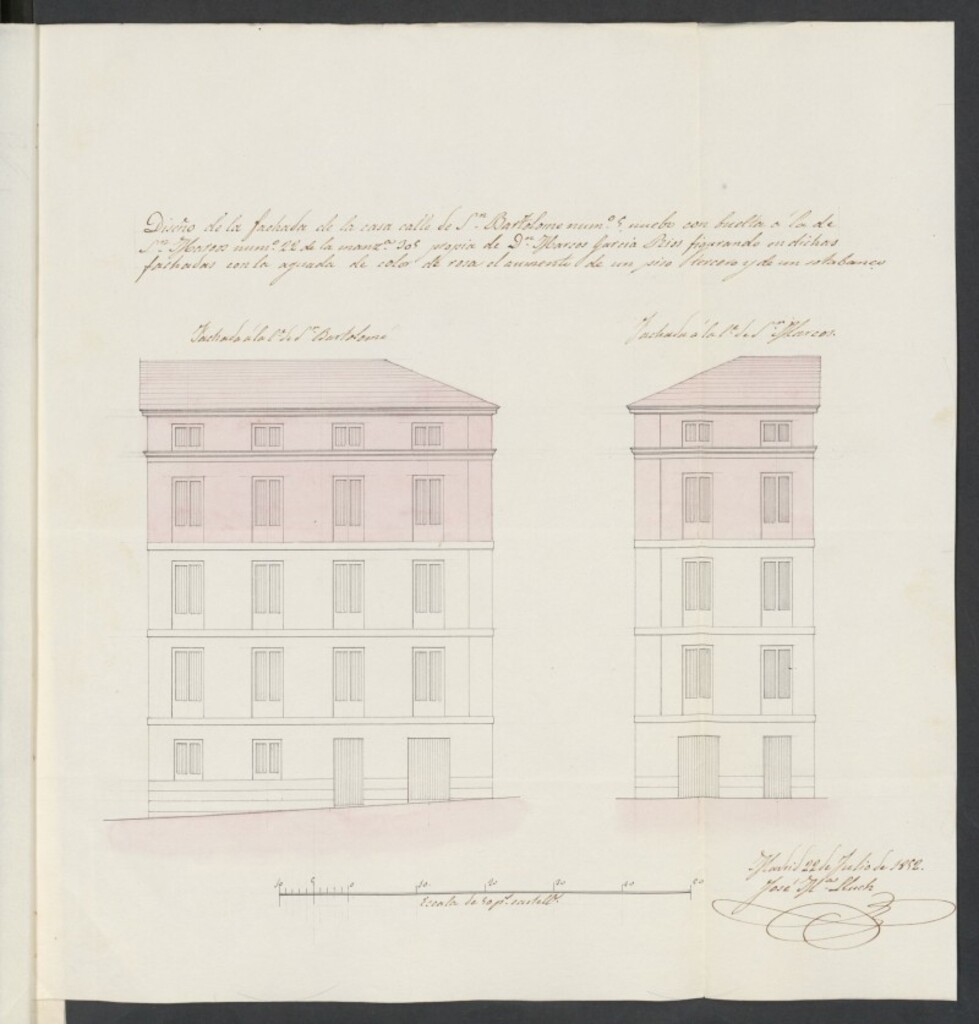 Diseño de la fachada de la casa calle de S.ⁿ Bartolome num.º 5, nuebo con buelta á la de
S.ⁿ Marcos num.º 22 de la manz.ª 305 propia de D.ⁿ Marcos Garcia Rios figurando en dichas
fachadas con la aguada de color de rosa el aumento de un piso tercero y de un sotabanco
Fachada á la C.ᵉ de S.ⁿ Bartolomé
Fachada á la C.ᵉ de S.ⁿ Marcos.
10 5 0 10 20 30 40 50
Escala de 50 p.ˢ castell.ˢ
Madrid 22 de Julio de 1852.
José M.ª Lluch